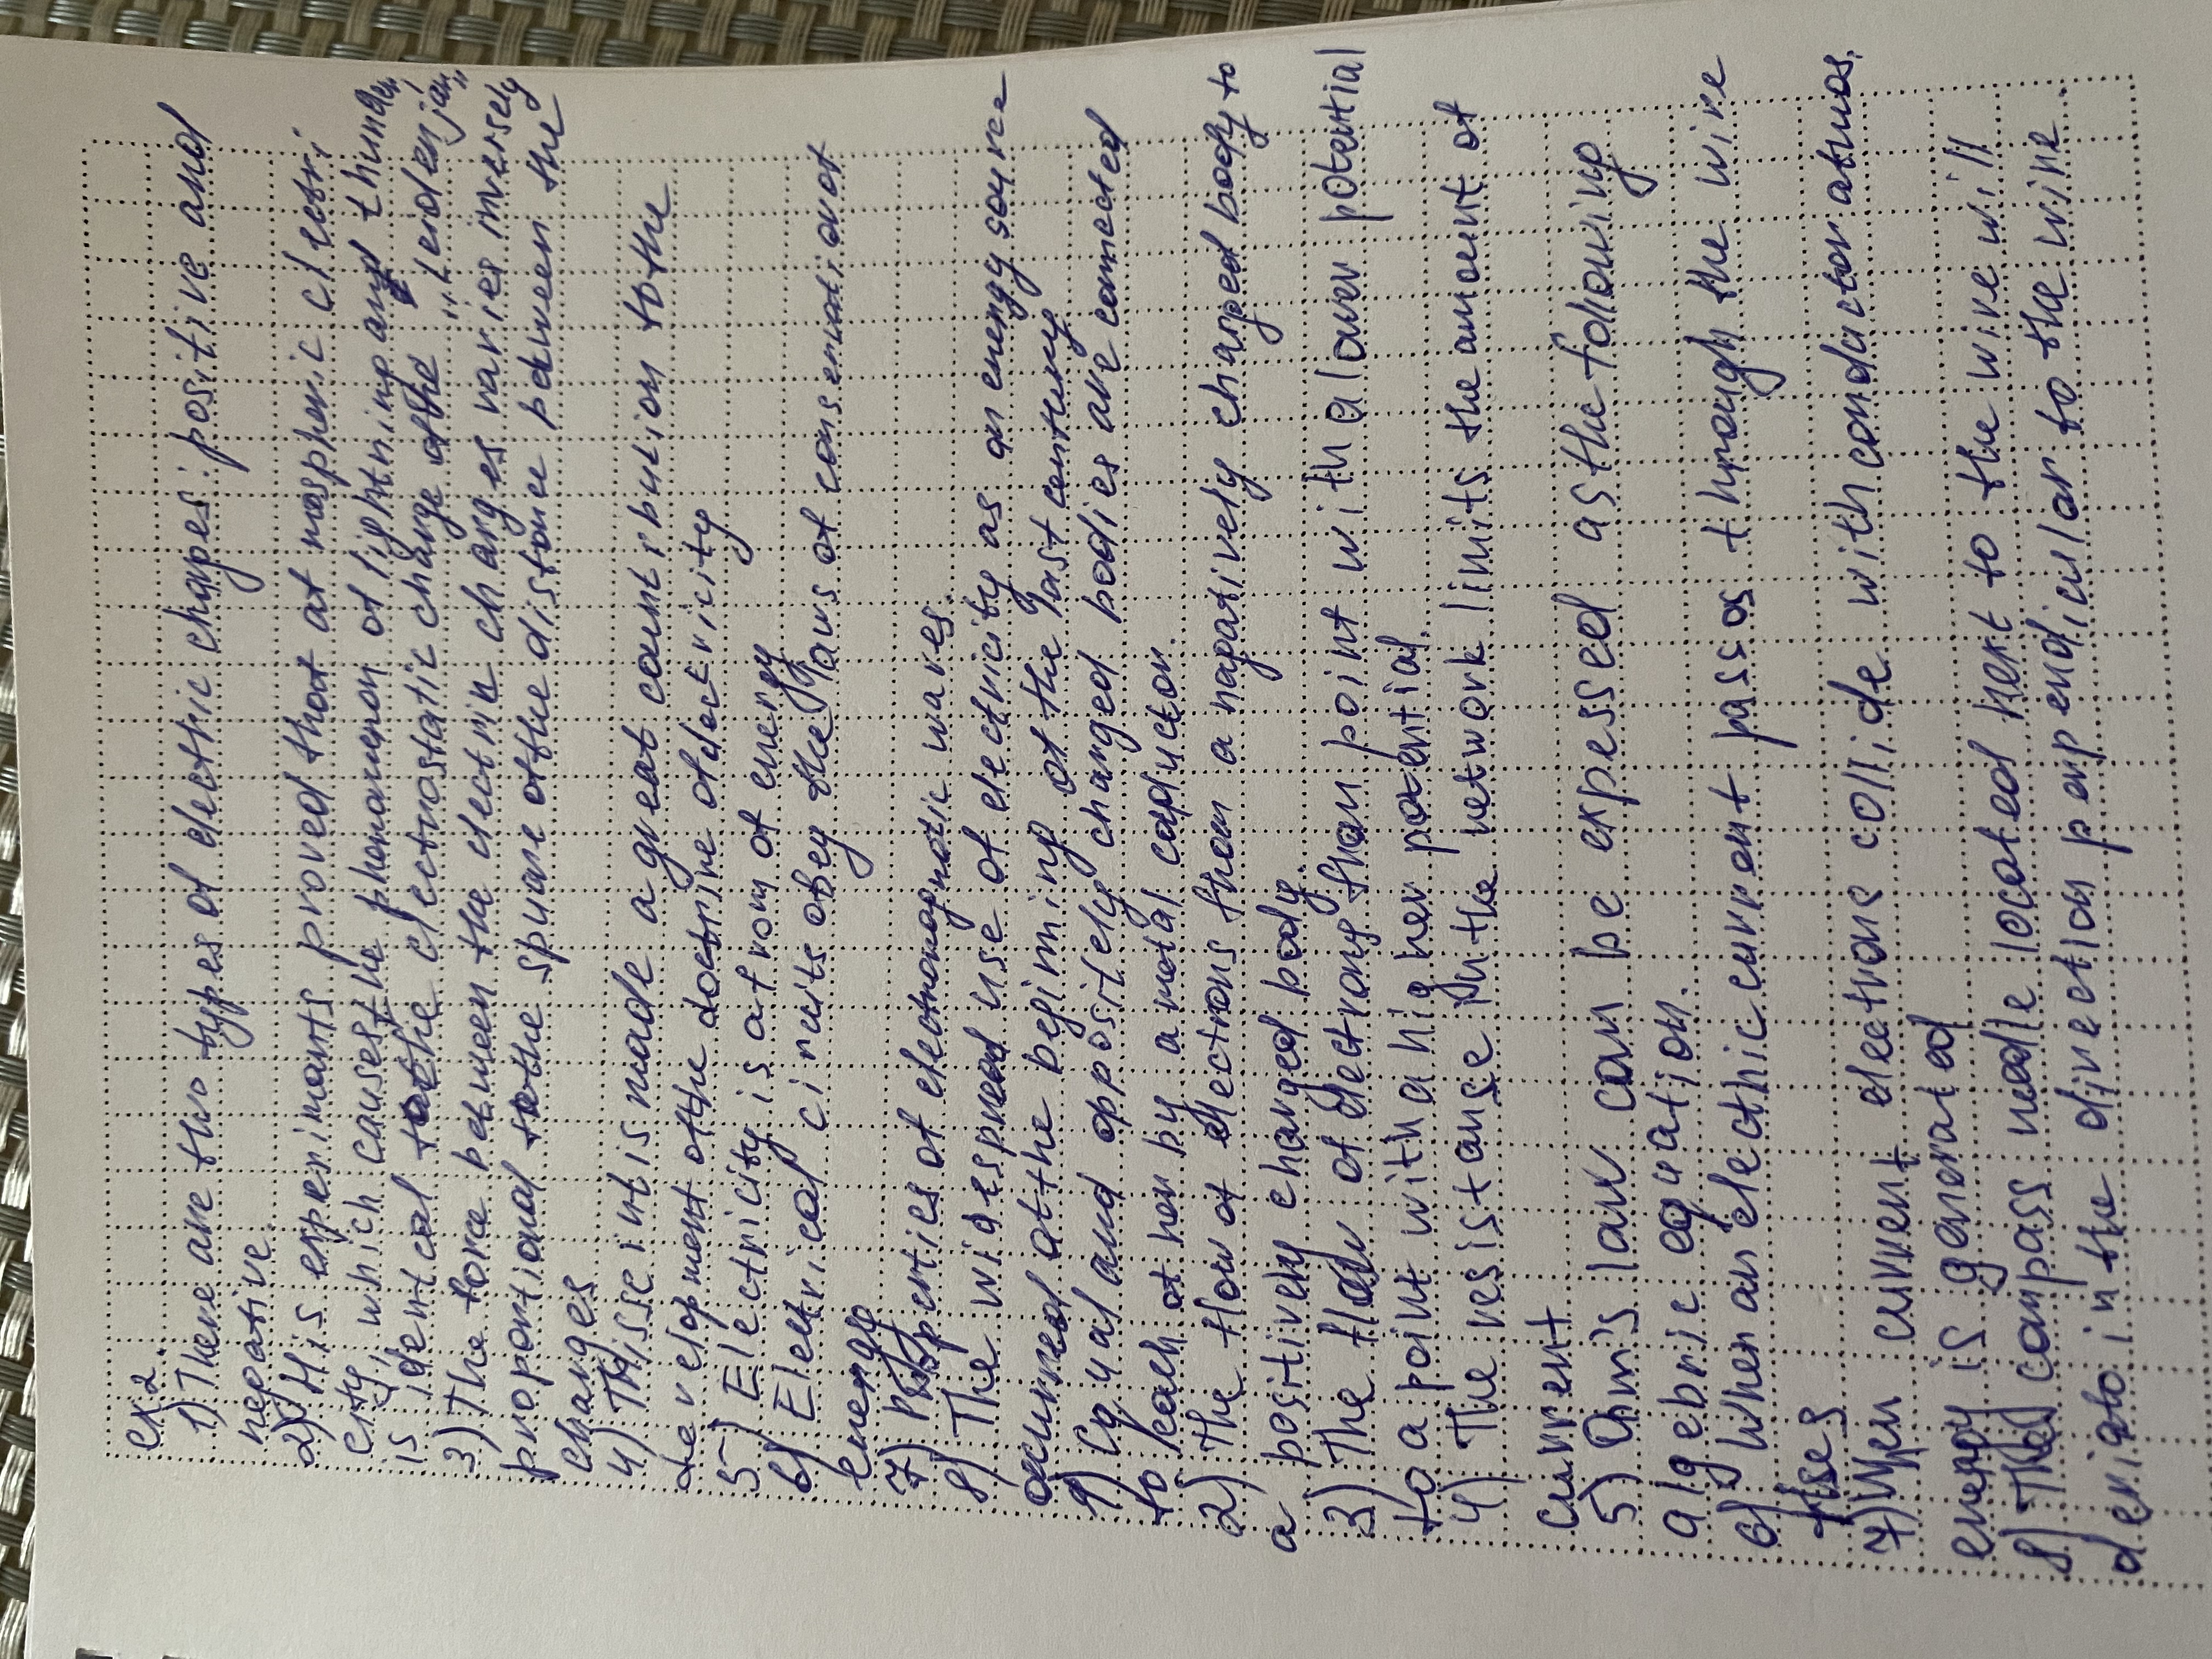 ex 2.
1) There are two types of electric charges: positive and
negative.
2) His experiments proved that at mospheric clectri
city, which causes the phenomenon of lightning and thunder,
is identical to the electrostatic charge of the "Leiden jar"
3) The force between the electric charges varies inversely
proportional to the square of the distance between the
charges
4) This scientis made a great countribution to the
development of the doctrine of electricity
5) Electricity is a from of energy
6) Elektrical circuits obey the laws of conservation of
energy
7) Properties of electromagnetic waves.
8) The widespread use of electricity as an energy source
occurred at the begining of the last century
1) Equal and oppositely charged bodies are connected
to each other by a metal conductor.
2) The flow of electrons from a nagatively charged body to
a positively charged body.
3) The flow of electrons from point with a lower potential
to a point with a higher potential.
4) The resistanse in the network limits the amount of
current
5) Ohm's law can be expessed as the following
algebric equation.
6) When an electhic current passos through the wire
rises
7) When current electrons collide with conductor atmos.
energy is generated
8) The compass needle located next to the wire will
deviato in the direction perpendicular to the wire.